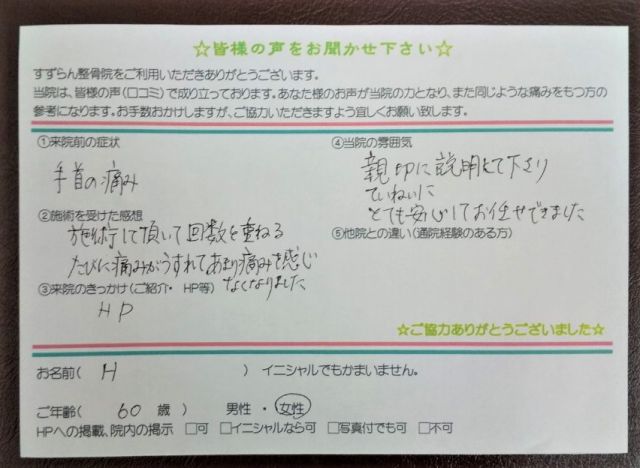 ☆皆様の声をお聞かせ下さい☆
すずらん整骨院をご利用いただきありがとうございます。
当院は、皆様の声(口コミ)で成り立っております。あなた様のお声が当院の力となり、また同じような痛みをもつ方の
参考になります。お手数おかけしますが、ご協力いただきますよう宜しくお願い致します。
①来院前の症状
手首の痛み
②施術を受けた感想
施術して頂いて回数を重ねる
たびに痛みがうすれてあまり痛みを感じ
なくなりました
③来院のきっかけ(ご紹介・ HP等)
HP
④当院の雰囲気
親切に説明して下さり
ていねいに
とても安心してお任せできました
⑤他院との違い(通院経験のある方)
☆ご協力ありがとうございました☆
お名前( H ) イニシャルでもかまいません。
ご年齢( 60 歳 ) 男性 ・ 女性
HPへの掲載、院内の掲示 □可 □イニシャルなら可 □写真付でも可 □不可